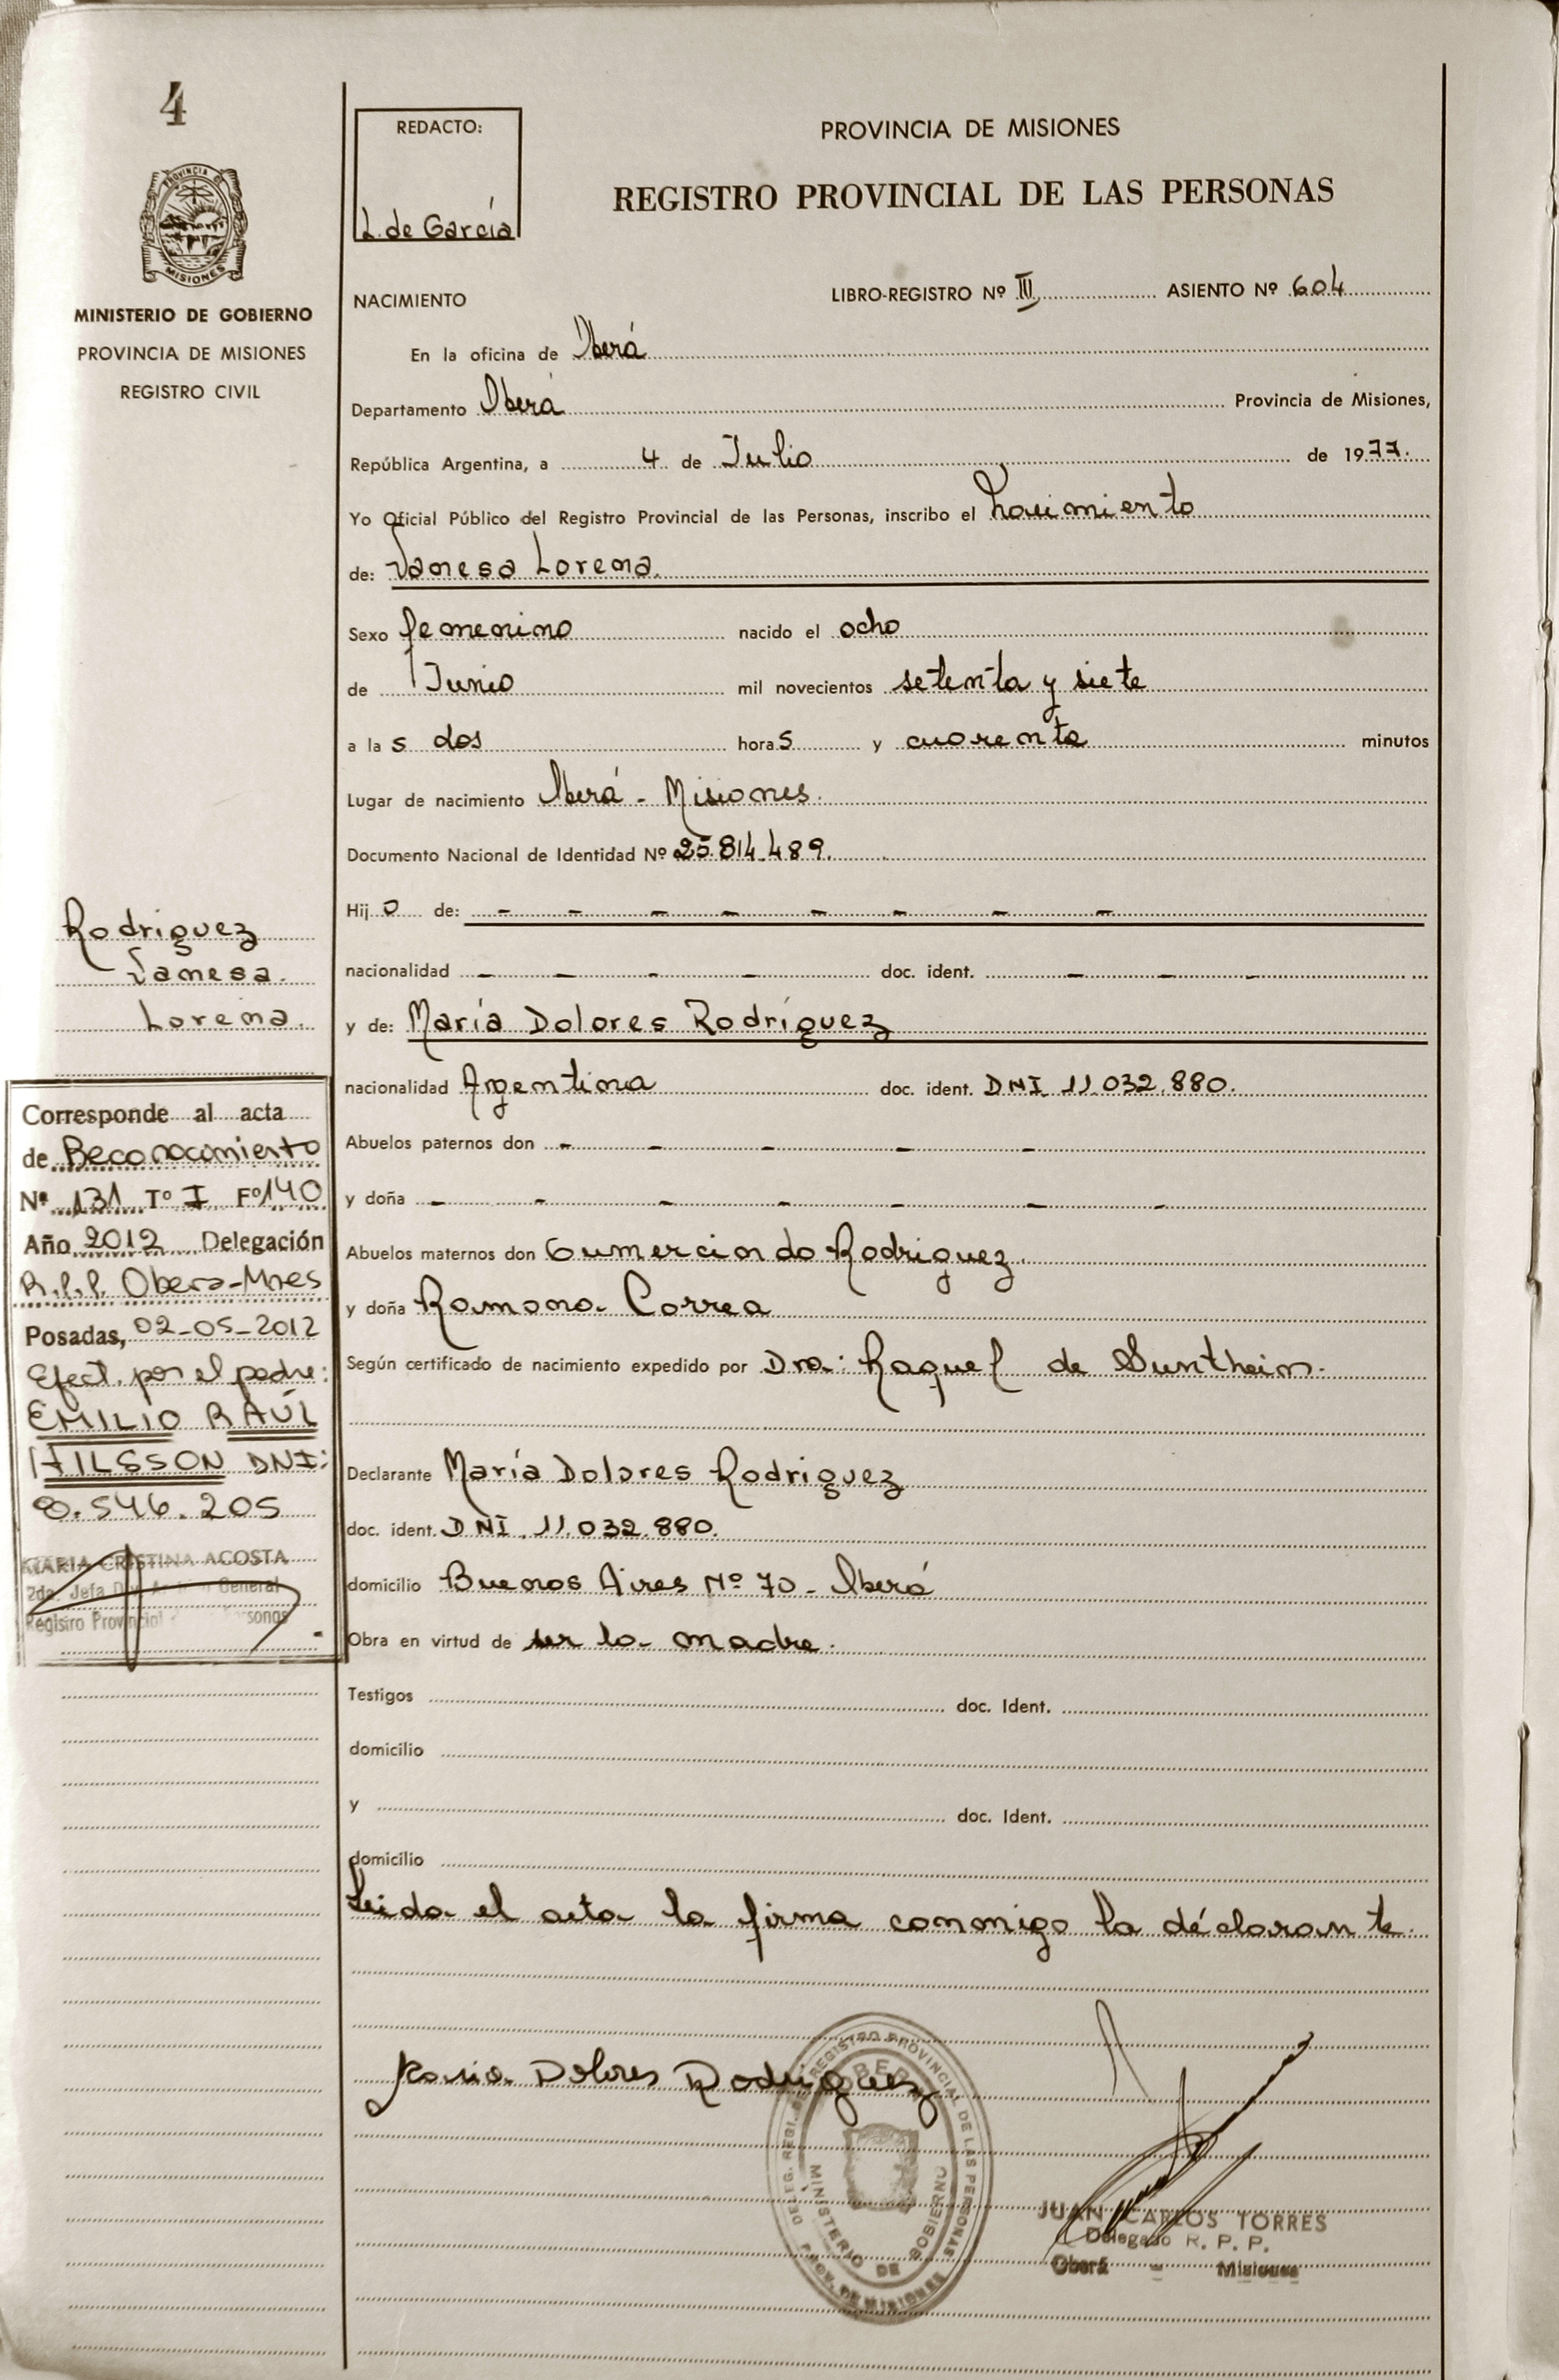 4
PROVINCIA DE
MISIONES
MINISTERIO DE GOBIERNO
PROVINCIA DE MISIONES
REGISTRO CIVIL
REDACTO:
L. de García
PROVINCIA DE MISIONES
REGISTRO PROVINCIAL DE LAS PERSONAS
NACIMIENTO LIBRO-REGISTRO Nº III ASIENTO Nº 604
En la oficina de Oberá
Departamento Oberá Provincia de Misiones,
República Argentina, a 4 de Julio de 1977.
Yo Oficial Público del Registro Provincial de las Personas, inscribo el nacimiento
de: Vanesa Lorena.
Sexo femenino nacido el ocho
de Junio mil novecientos setenta y siete
a las dos horas y cuarenta minutos
Lugar de nacimiento Oberá - Misiones.
Documento Nacional de Identidad Nº 25.814.489.
Hijo de: - - - - - - - -
nacionalidad - - - - doc. ident. - - -
y de: María Dolores Rodríguez
nacionalidad Argentina doc. ident. DNI 11.032.880.
Abuelos paternos don - - - - -
y doña - - - - - - -
Abuelos maternos don Gumercindo Rodriguez.
y doña Ramona Correa
Según certificado de nacimiento expedido por Dra: Raquel de Suntheim.
Declarante María Dolores Rodriguez
doc. ident. DNI. 11.032.880.
domicilio Buenos Aires Nº 70 - Oberá
Obra en virtud de ser la madre.
Testigos doc. Ident.
domicilio
y doc. Ident.
domicilio
Leída el acta la firma conmigo la declarante.
Maria Dolores Rodriguez
DELEG. REGI. DE REGISTRO PROVINCIAL DE LAS PERSONAS
OBERA
MINISTERIO DE GOBIERNO
PROV. DE MISIONES
JUAN CARLOS TORRES
Delegado R. P. P.
Oberá - Misiones
Rodriguez
Vanesa.
Lorena.
Corresponde al acta
de Reconocimiento
Nº 131 Tº I Fº 140
Año 2012 Delegación
R.P.P. Obera-Mnes
Posadas, 02-05-2012
Efect. por el padre:
EMILIO RAÚL
HILSSON DNI:
8.546.205
MARIA CRISTINA ACOSTA
2da. Jefa General
Registro Provincial Personas